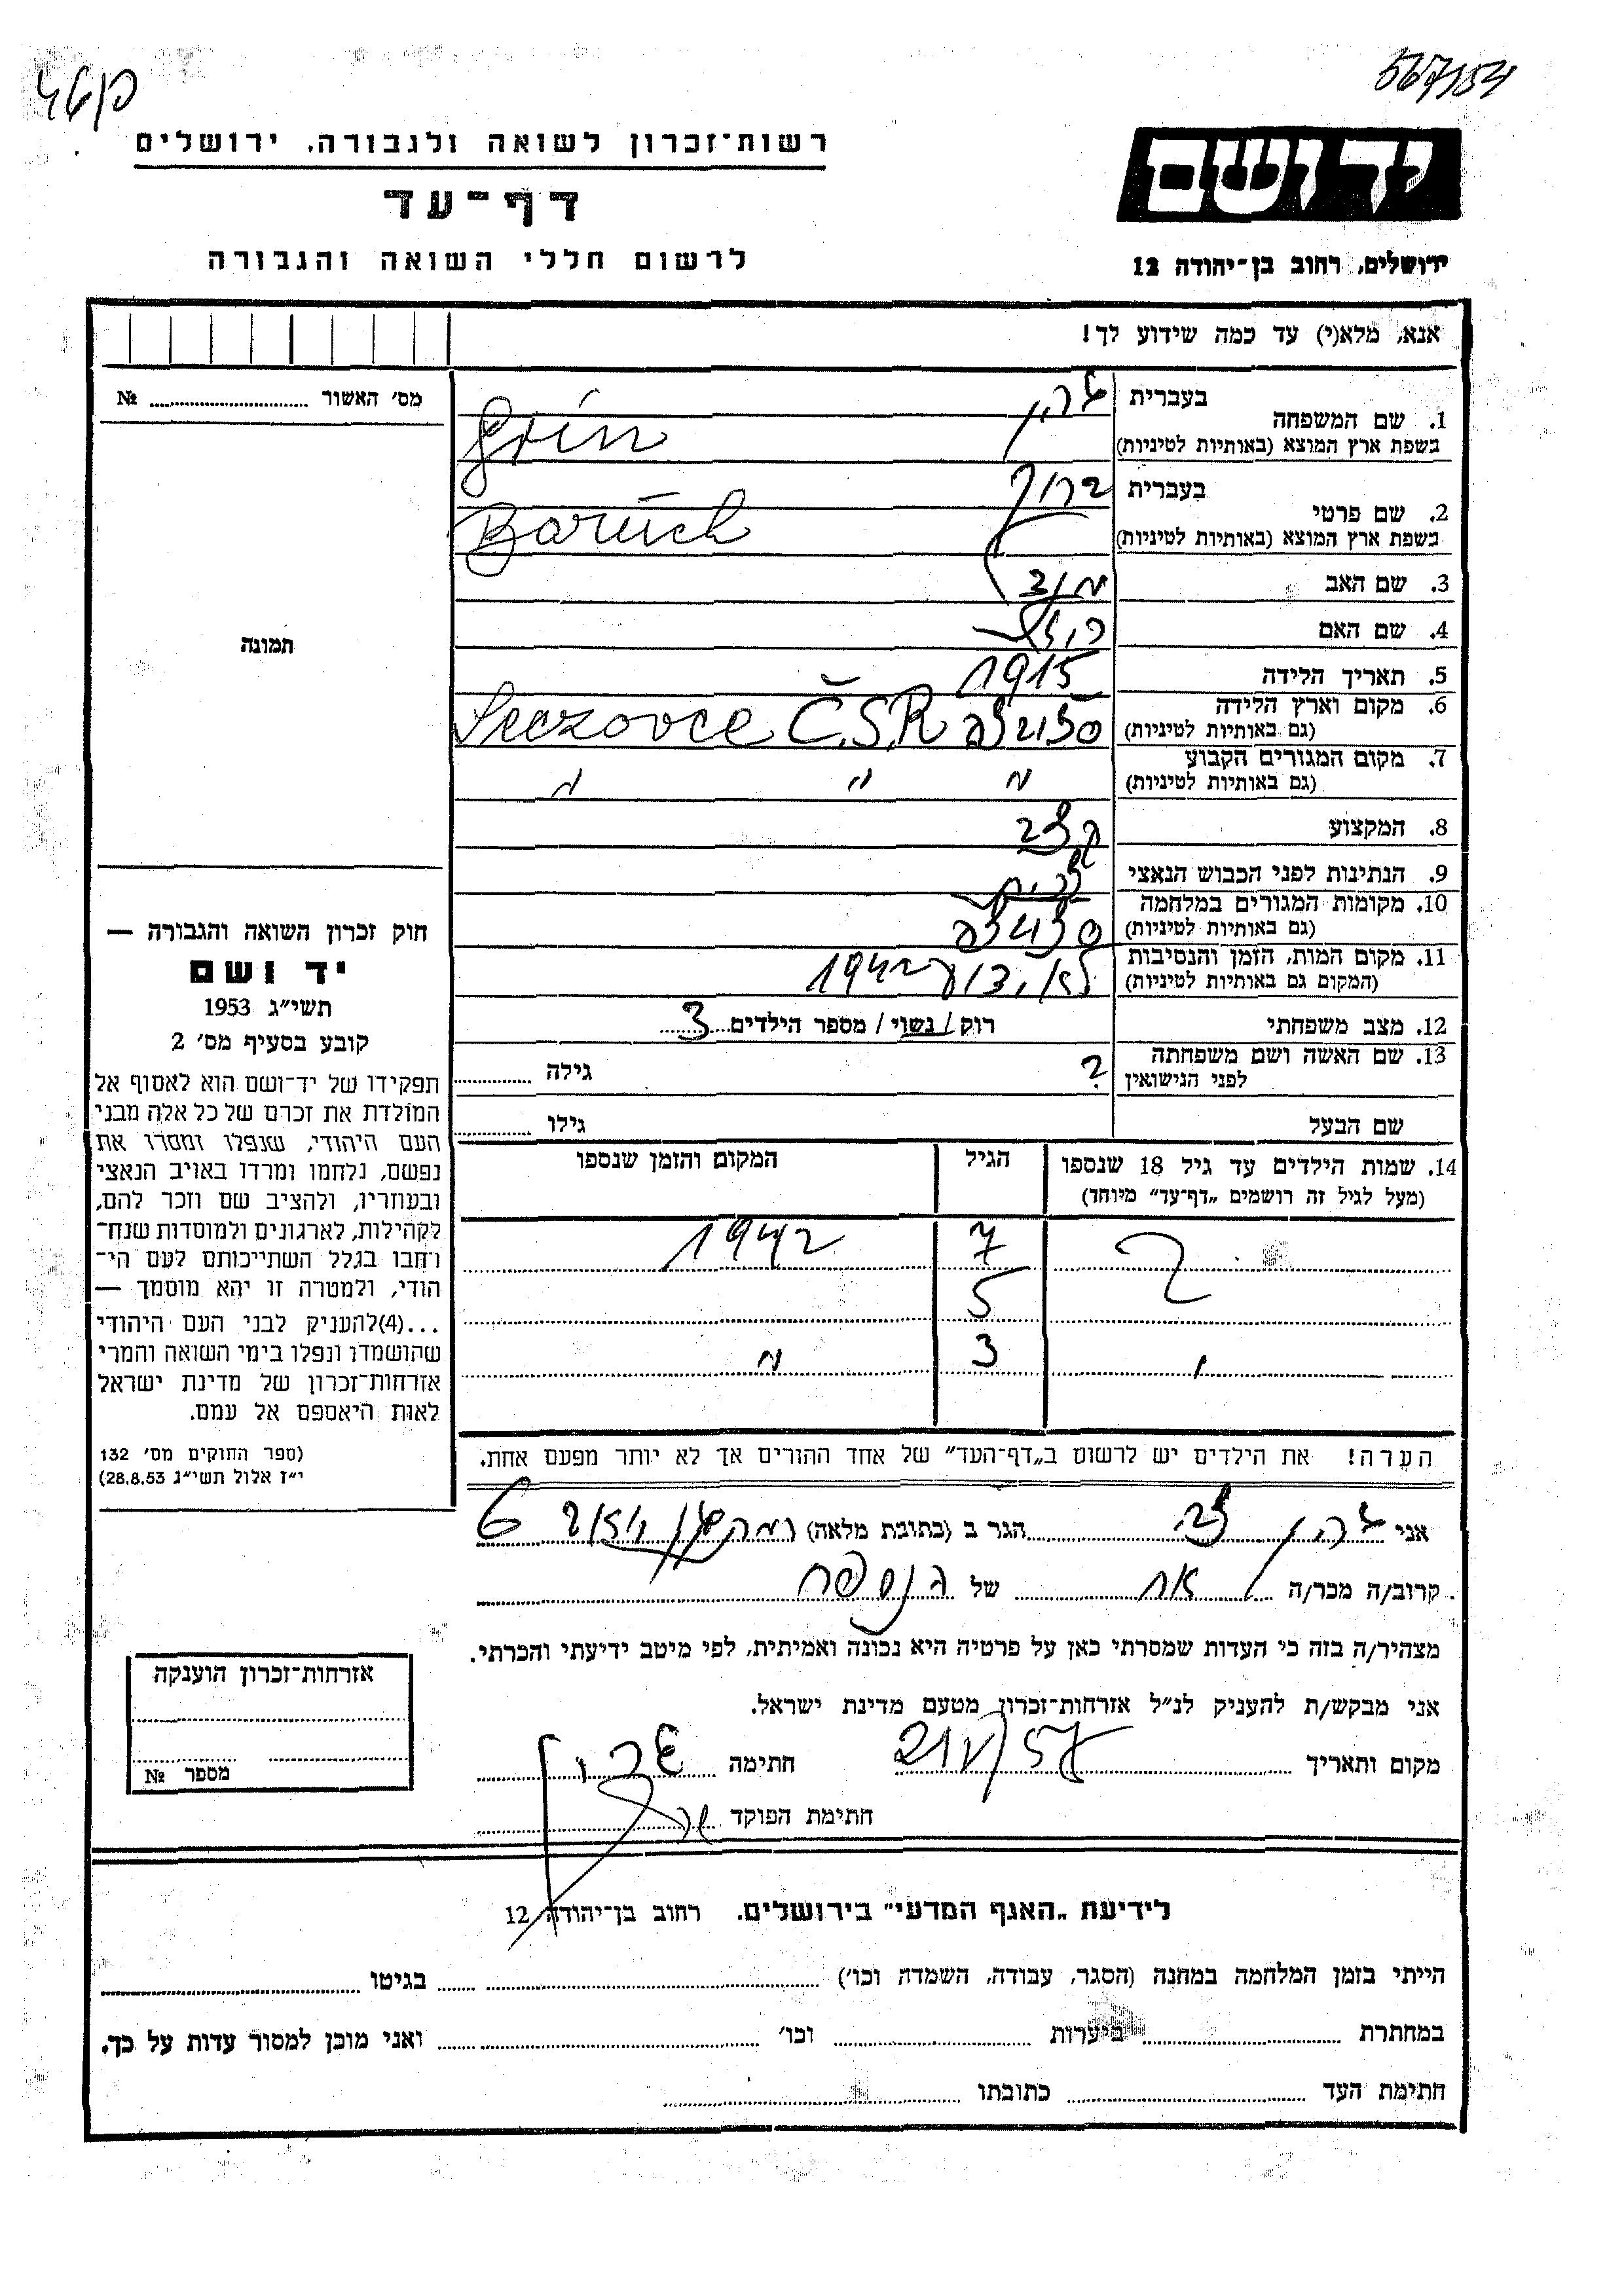 567/154
רשות־זכרון לשואה ולגבורה. ירושלים
דף־עד
לרשום חללי השואה והגבורה
יד ושם
ירושלים, רחוב בן־יהודה 12
אנא, מלא(י) עד כמה שידוע לך!
מס׳ האשור ... №
תמונה
חוק זכרון השואה והגבורה —
יד ושם
תשי״ג 1953
קובע בסעיף מס׳ 2
תפקידו של יד־ושם הוא לאסוף אל
המולדת את זכרם של כל אלה מבני
העם היהודי, שנפלו ומסרו את
נפשם, נלחמו ומרדו באויב הנאצי
ובעוזריו, ולהציב שם וזכר להם,
לקהילות, לארגונים ולמוסדות שנח־
רחבו בגלל השתייכותם לעם הי־
הודי, ולמטרה זו יהא מוסמך —
...(4)להעניק לבני העם היהודי
שהושמדו ונפלו בימי השואה והמרי
אזרחות־זכרון של מדינת ישראל
לאות היאספם אל עמם.
(ספר החוקים מס׳ 132
י״ז אלול תשי״ג 28.8.53)
1. שם המשפחה בעברית גרין
בשפת ארץ המוצא (באותיות לטיניות) Grín
2. שם פרטי בעברית ברוך
בשפת ארץ המוצא (באותיות לטיניות) Baruch
3. שם האב
4. שם האם
5. תאריך הלידה 1915
6. מקום וארץ הלידה (גם באותיות לטיניות) Č.S.R
7. מקום המגורים הקבוע (גם באותיות לטיניות) " " "
8. המקצוע
9. הנתינות לפני הכבוש הנאצי
10. מקומות המגורים במלחמה (גם באותיות לטיניות)
11. מקום המות, הזמן והנסיבות (המקום גם באותיות לטיניות) 1942
12. מצב משפחתי רוק / נשוי / מספר הילדים 3
13. שם האשה ושם משפחתה לפני הנישואין ? גילה
שם הבעל גילו
14. שמות הילדים עד גיל 18 שנספו (מעל לגיל זה רושמים „דף־עד״ מיוחד) הגיל המקום והזמן שנספו
? 7 1942
5
3 "
הערה! את הילדים יש לרשום ב„דף־העד״ של אחד ההורים אך לא יותר מפעם אחת.
אני גרין הגר ב (כתובת מלאה) 6
קרוב/ה מכר/ה אח של הנספה
מצהיר/ה בזה כי העדות שמסרתי כאן על פרטיה היא נכונה ואמיתית, לפי מיטב ידיעתי והכרתי.
אני מבקש/ת להעניק לנ״ל אזרחות־זכרון מטעם מדינת ישראל.
מקום ותאריך חתימה גרין
חתימת הפוקד
אזרחות־זכרון הוענקה
מספר №
לידיעת „האגף המדעי״ בירושלים. רחוב בן־יהודה 12
הייתי בזמן המלחמה במחנה (הסגר, עבודה, השמדה וכו׳) בגיטו
במחתרת ביערות וכו׳ ואני מוכן למסור עדות על כך.
חתימת העד כתובתו